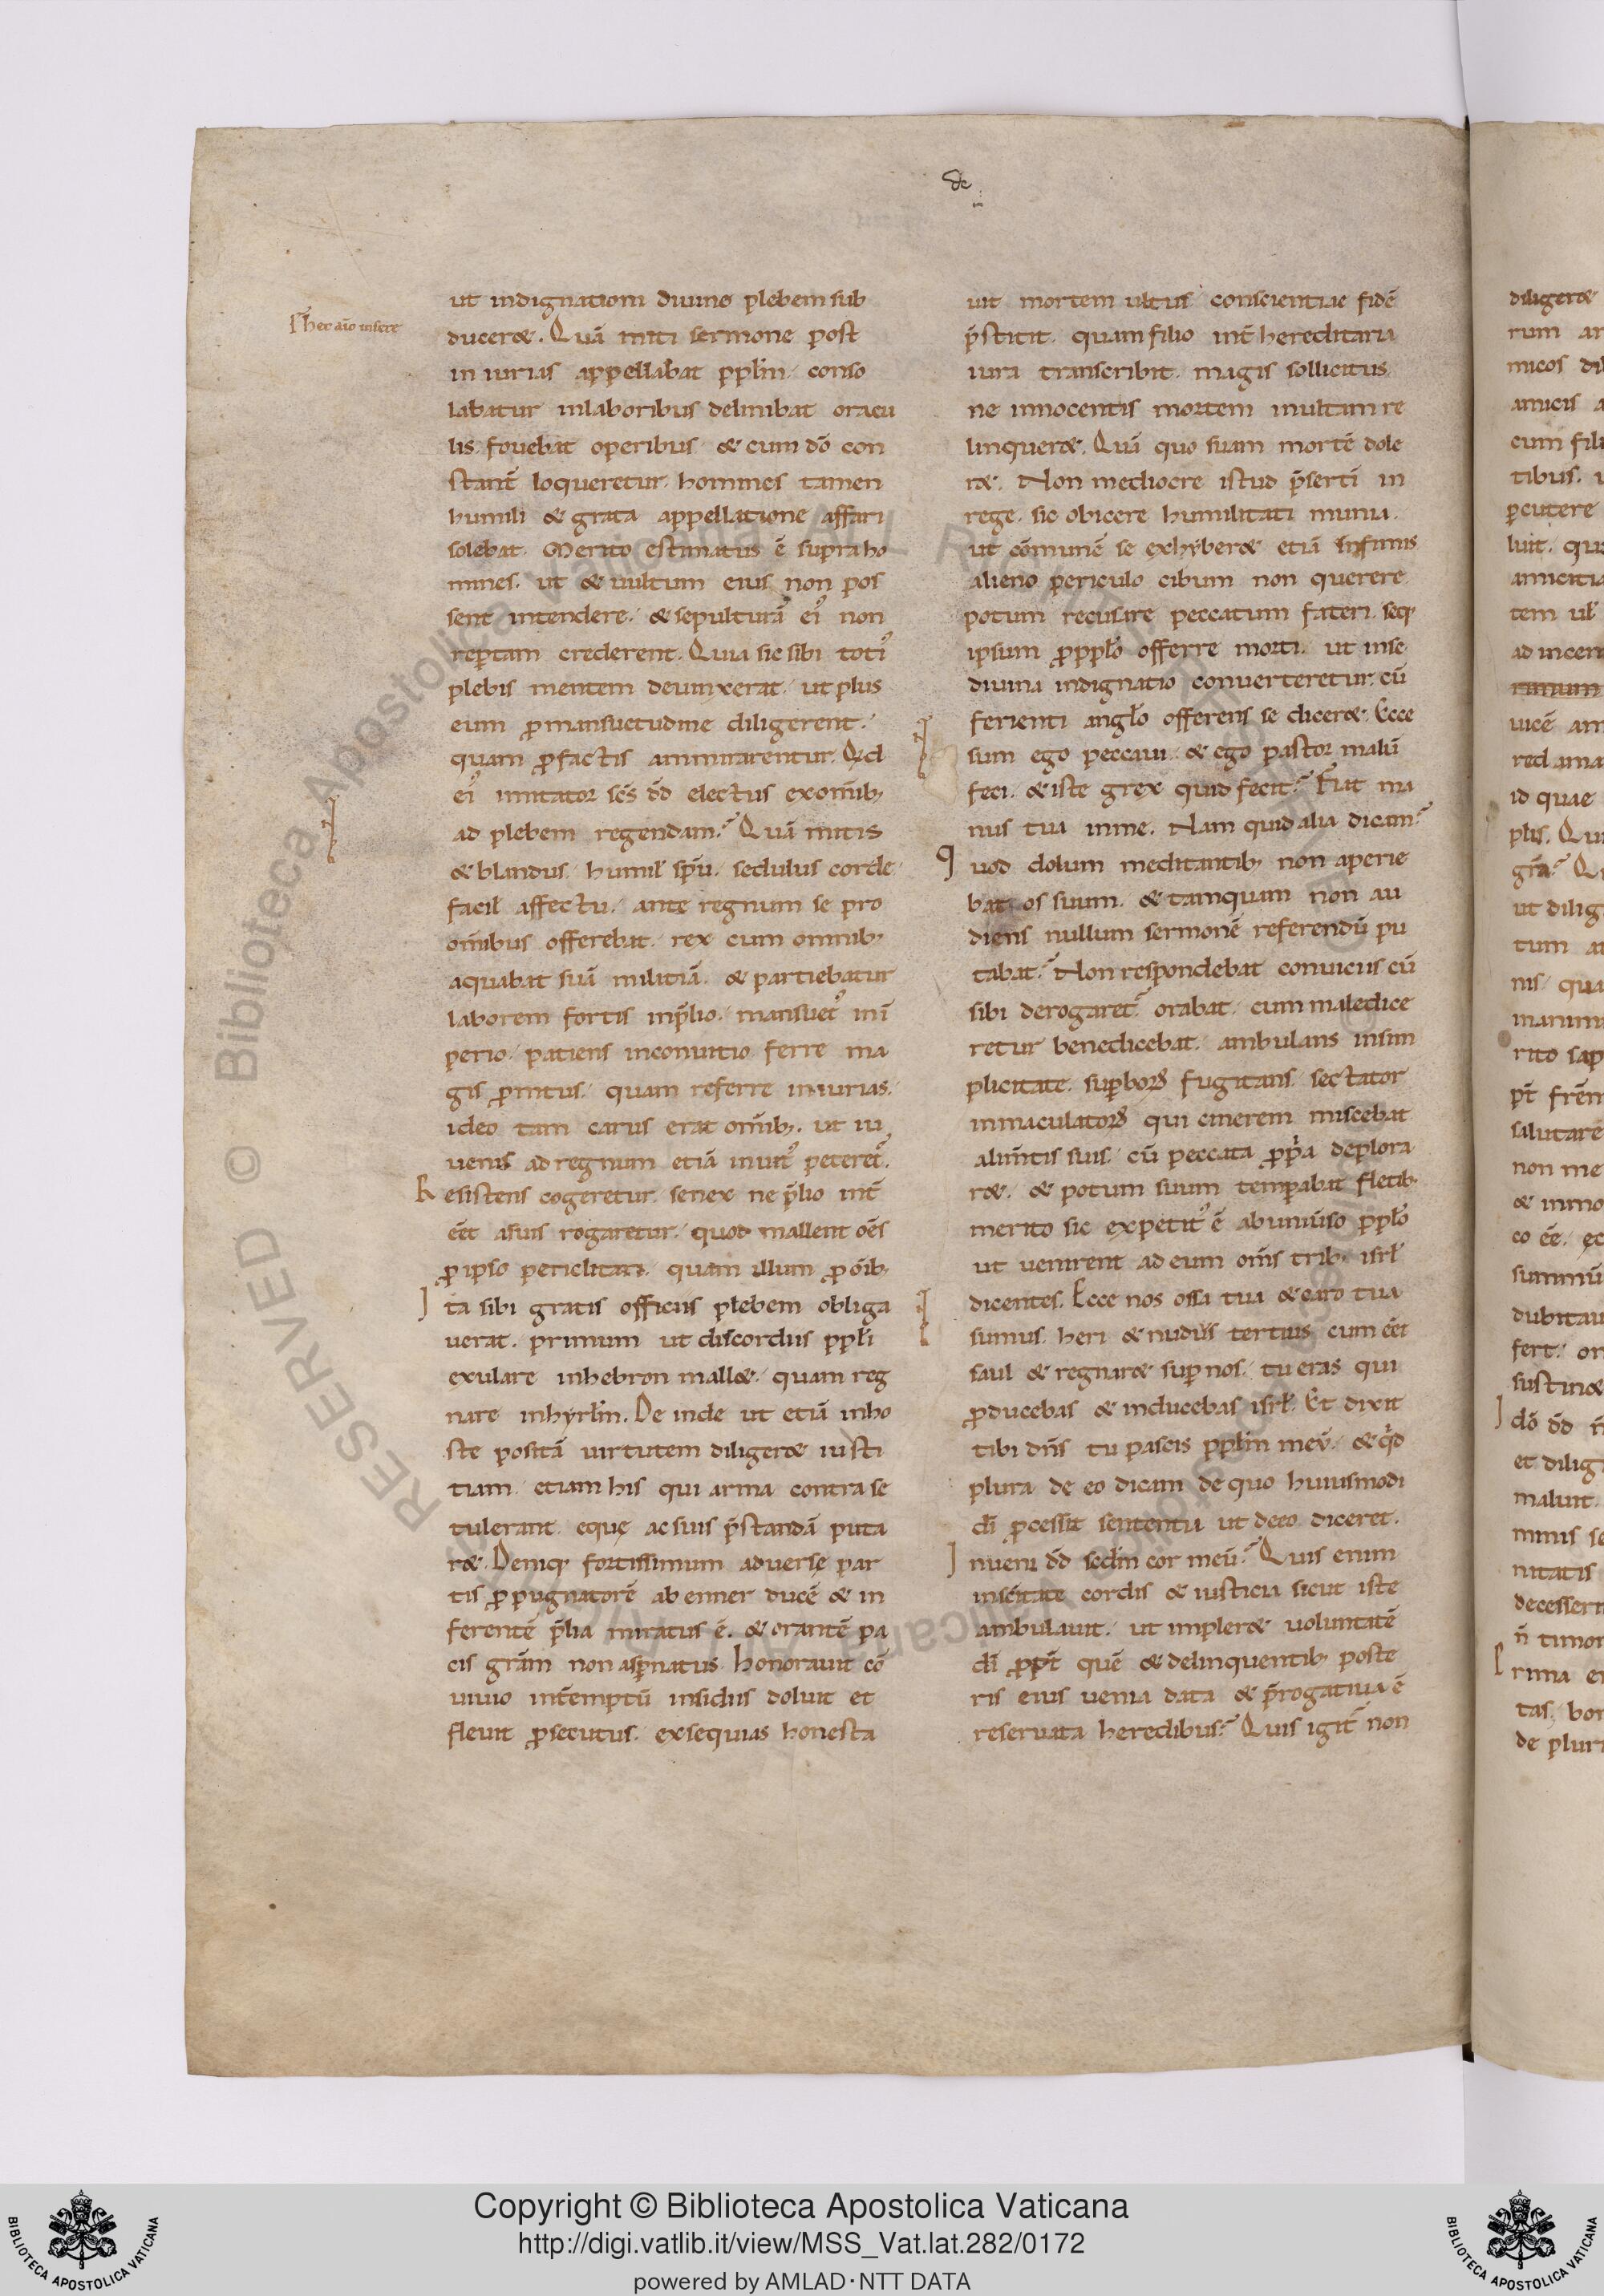 de
ut indignationi diuinę plebem sub
ducer&. Quā miti sermone post
in iurias appellabat pp̄lm. conso
labatur inlaboribus delinibat oracu
lis. fouebat operibus & cum dō con
stant̄ loqueretur. homines tamen
humili & grata appellatione affari
solebat. Merito estimatus ē supra ho
mines. ut & uultum eius non pos
sent intendere. & sepulturā ei᾽ non
rep̄tam crederent. Quia sic sibi toti᾽
plebis mentem deuinxerat. ut plus
eum ꝓmansuetudine diligerent.
quam ꝓfactis ammirarentur. Qd
ei᾽ imitator sc̄s dd̄ electus exom̄ib;
ad plebem regendam? Quā mitis
& blandus. humil̄ sp̄u. sedulus corde.
facil̄ affectu. ante regnum se pro
om̄ibus offerebat. rex cum omnib;
aquabat suā militiā. & partiebatur
laborem fortis inp̄lio. mansuet᾽ inī
perio. patiens inconuitio ferre ma
gis ꝓmtus. quam referre iniurias.
ideo tam carus erat om̄ib;. ut iu
uenis ad regnum etiā inuit᾽ peteret᷑.
Resistens cogeretur. senex ne p̄lio int̄
ēet asuis rogaretur. quod mallent om̄s
ꝓ ipso periclitari. quam illum ꝓ om̄ib;
Ita sibi gratis officiis plebem obliga
uerat. primum ut discordiis pp̄li
exulare inhebron mall&. quam reg
nare inhyrl̄m. De inde ut etiā inho
ste positā uirtutem diliger& iusti
tiam. etiam his qui arma contra se
tulerant. eque ac suis p̄standā puta
r&. Deniq; fortissimum aduerse par
tis ꝓpugnatorē ab enner ducē & in
ferentē p̄lia miratus ē. & orantē pa
cis grām non asp̄natus. honorauit cō
uiuio int̄emptū insidiis doluit et
fleuit ꝓsecutus. exsequias honesta
uit mortem ultus conscientiae fidē
p̄stitit. quam filio int̄ hereditaria
iura transcribit. magis sollicitus.
ne innocentis mortem inultam re
linquer&. Quā quo suam mortē dole
r&. Non mediocre istud p̄sertī in
rege. sic obicere humilitati munia.
ut cōmunē se exhyber& etiā infimis
alieno periculo cibum non querere
potum recusare peccatum fateri. seq;
ipsum ꝓpp̄lo offerre morti. ut inse
diuina indignatio conuerteretur. cū
ferienti angl̄o offerens se dicer&. Ecce
sum ego peccaui. & ego pastor malū
feci. & iste grex quid fecit? Fiat ma
nus tua inme. Nam quid alia dicam?
quod dolum meditantib; non aperie
bat os suum. & tamquam non au
diens nullum sermonē referendū pu
tabat? Non respondebat conuiciis cū
sibi derogaret᷑. orabat. cum maledice
retur benedicebat. ambulans insim
plicitate. sup̄boꝝ fugitans. sectator
inmaculatoꝝ qui cinerem miscebat
alim̄tis suis. cū peccata ꝓp̄a deplora
r&. & potum suum temp̄abat fletib;
merito sic expetit᾽ ē ab uniu̅so pp̄lo
ut uenirent ad eum om̄s trib; isrl̄
dicentes. Ecce nos ossa tua & caro tua
sumus. heri & nudius tertius cum ēet
saul & regnar& sup nos. tu eras qui
ꝓducebas & inducebas isrl̄. Et dixit
tibi dn̄s tu pascis pp̄lm meū. & qd̄
plura de eo dicam de quo huiusmodi
dī ꝓcessit sententia ut deeo diceret.
Inueni dd̄ scdm̄ cor meū? Quis enim
insc̄itate cordis & iusticia sicut iste
ambulauit. ut impler& uoluntatē
dī ꝓpt̄ quē & delinquentib; poste
ris eius uenia data & p̄rogatiua ē
reseruata heredibus? Quis igit᷑ non
Copyright © Biblioteca Apostolica Vaticana
http://digi.vatlib.it/view/MSS_Vat.lat.282/0172
powered by AMLAD·NTT DATA